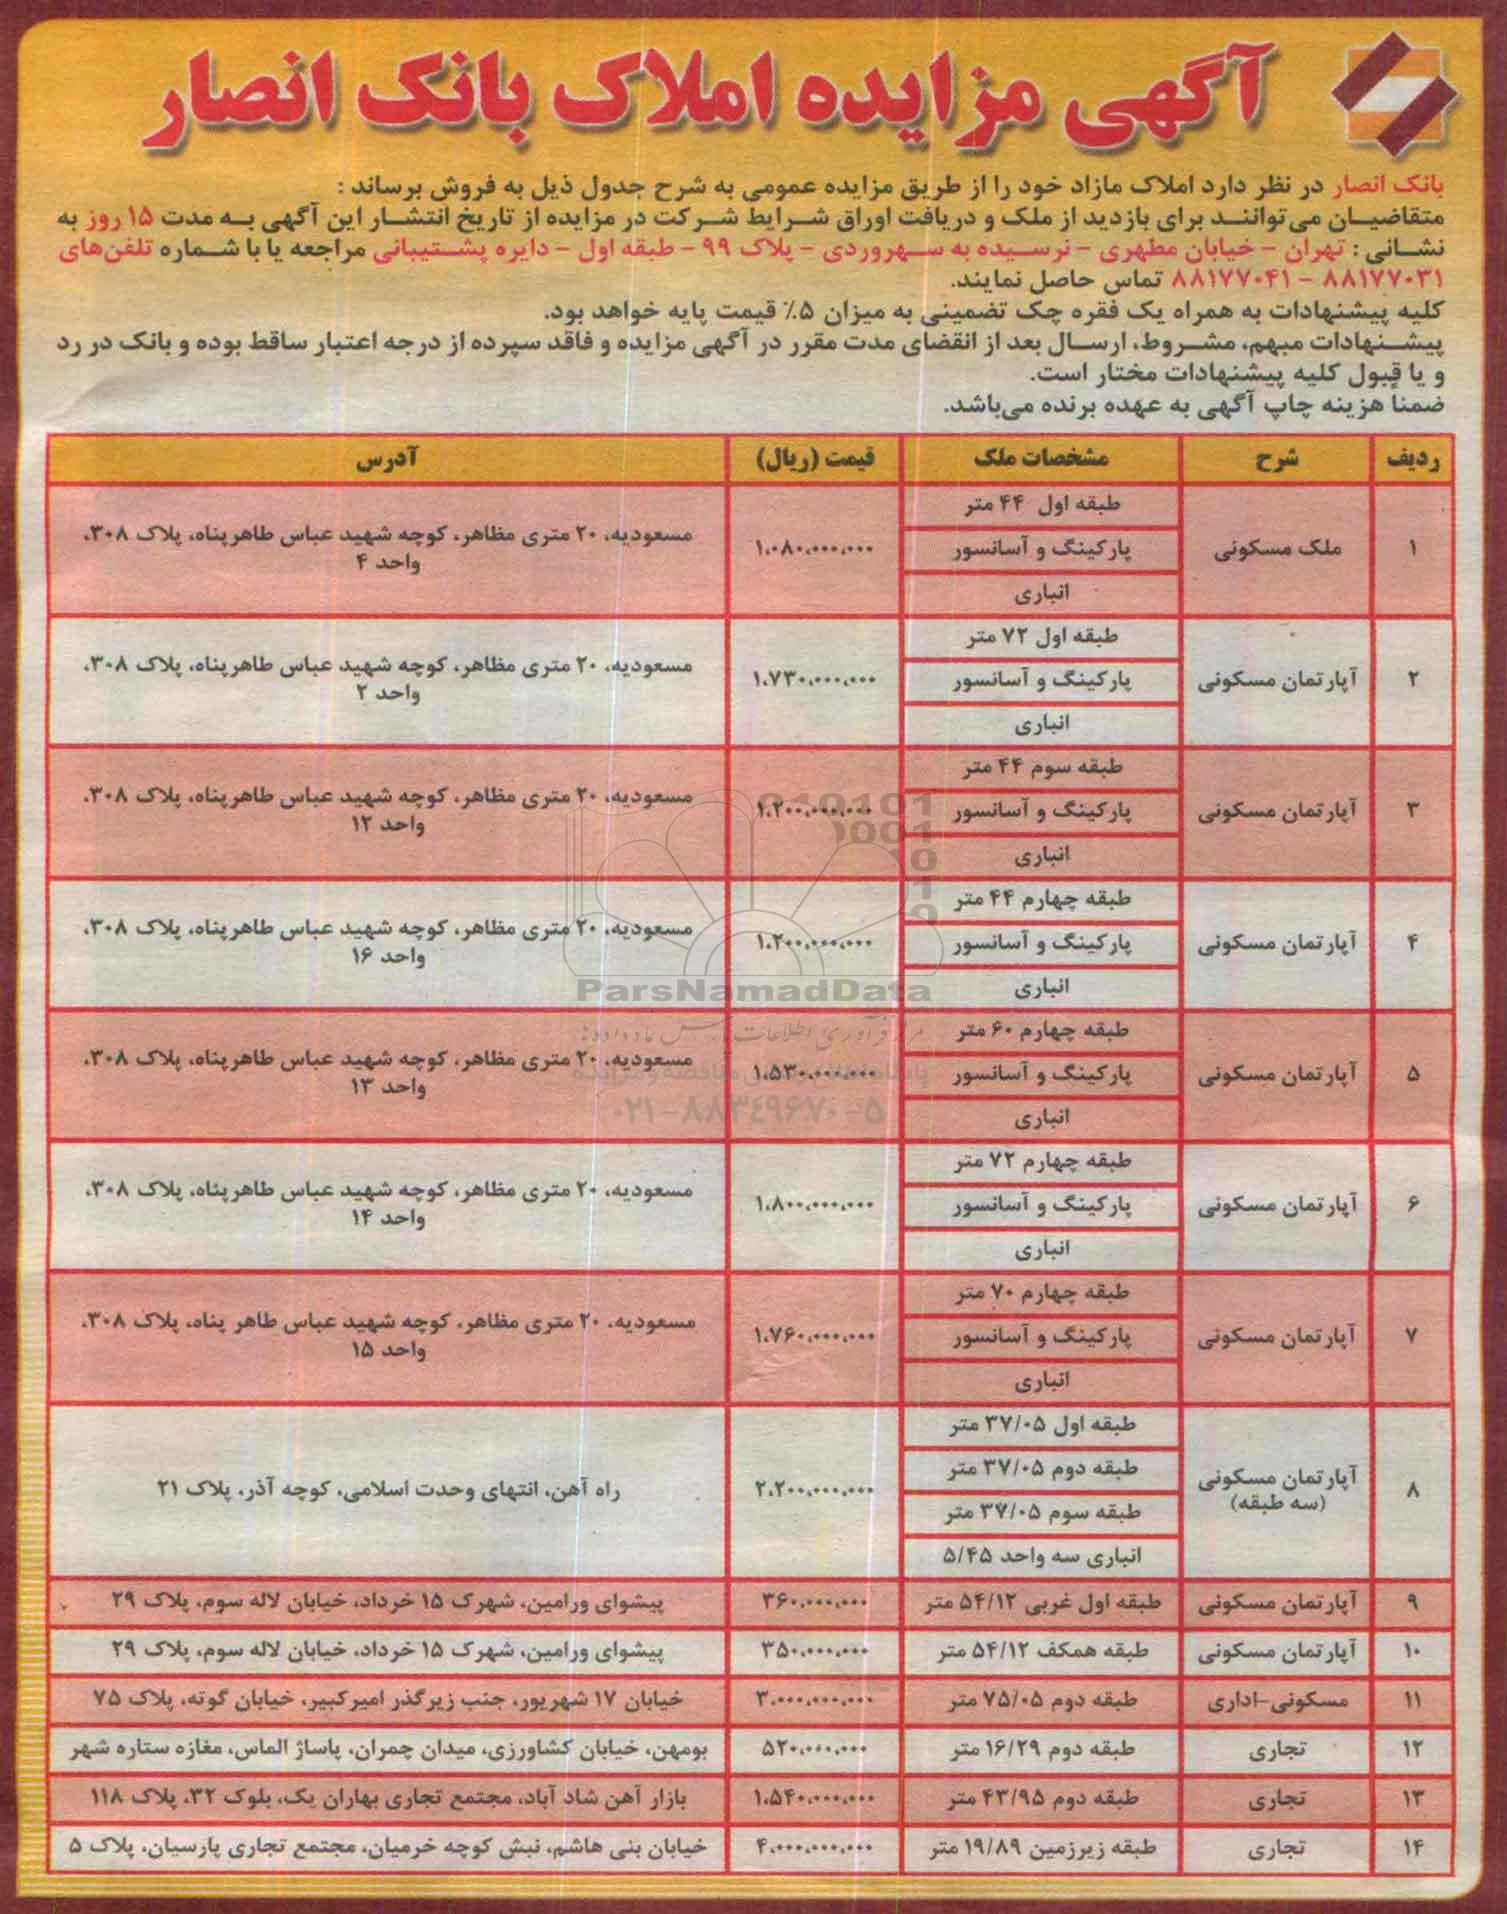 آگهی مزایده املاک بانک انصار
بانک انصار در نظر دارد املاک مازاد خود را از طریق مزایده عمومی به شرح جدول ذیل به فروش برساند :
متقاضیان می‌توانند برای بازدید از ملک و دریافت اوراق شرایط شرکت در مزایده از تاریخ انتشار این آگهی به مدت ۱۵ روز به
نشانی : تهران - خیابان مطهری - نرسیده به سهروردی - پلاک ۹۹ - طبقه اول - دایره پشتیبانی مراجعه یا با شماره تلفن‌های
۸۸۱۷۷۰۳۱ - ۸۸۱۷۷۰۴۱ تماس حاصل نمایند.
کلیه پیشنهادات به همراه یک فقره چک تضمینی به میزان ۵٪ قیمت پایه خواهد بود.
پیشنهادات مبهم، مشروط، ارسال بعد از انقضای مدت مقرر در آگهی مزایده و فاقد سپرده از درجه اعتبار ساقط بوده و بانک در رد
و یا قبول کلیه پیشنهادات مختار است.
ضمناً هزینه چاپ آگهی به عهده برنده می‌باشد.
ردیف شرح مشخصات ملک قیمت (ریال) آدرس
۱ ملک مسکونی طبقه اول ۴۴ متر ۱،۰۸۰،۰۰۰،۰۰۰ مسعودیه، ۲۰ متری مظاهر، کوچه شهید عباس طاهرپناه، پلاک ۳۰۸،
پارکینگ و آسانسور واحد ۴
انباری
۲ آپارتمان مسکونی طبقه اول ۷۲ متر ۱،۷۳۰،۰۰۰،۰۰۰ مسعودیه، ۲۰ متری مظاهر، کوچه شهید عباس طاهرپناه، پلاک ۳۰۸،
پارکینگ و آسانسور واحد ۲
انباری
۳ آپارتمان مسکونی طبقه سوم ۴۴ متر ۱،۲۰۰،۰۰۰،۰۰۰ مسعودیه، ۲۰ متری مظاهر، کوچه شهید عباس طاهرپناه، پلاک ۳۰۸،
پارکینگ و آسانسور واحد ۱۲
انباری
۴ آپارتمان مسکونی طبقه چهارم ۴۴ متر ۱،۲۰۰،۰۰۰،۰۰۰ مسعودیه، ۲۰ متری مظاهر، کوچه شهید عباس طاهرپناه، پلاک ۳۰۸،
پارکینگ و آسانسور واحد ۱۶
انباری
۵ آپارتمان مسکونی طبقه چهارم ۶۰ متر ۱،۵۳۰،۰۰۰،۰۰۰ مسعودیه، ۲۰ متری مظاهر، کوچه شهید عباس طاهرپناه، پلاک ۳۰۸،
پارکینگ و آسانسور واحد ۱۳
انباری
۶ آپارتمان مسکونی طبقه چهارم ۷۲ متر ۱،۸۰۰،۰۰۰،۰۰۰ مسعودیه، ۲۰ متری مظاهر، کوچه شهید عباس طاهرپناه، پلاک ۳۰۸،
پارکینگ و آسانسور واحد ۱۴
انباری
۷ آپارتمان مسکونی طبقه چهارم ۷۰ متر ۱،۷۶۰،۰۰۰،۰۰۰ مسعودیه، ۲۰ متری مظاهر، کوچه شهید عباس طاهر پناه، پلاک ۳۰۸،
پارکینگ و آسانسور واحد ۱۵
انباری
۸ آپارتمان مسکونی (سه طبقه) طبقه اول ۳۷/۰۵ متر ۲،۲۰۰،۰۰۰،۰۰۰ راه آهن، انتهای وحدت اسلامی، کوچه آذر، پلاک ۲۱
طبقه دوم ۳۷/۰۵ متر
طبقه سوم ۳۷/۰۵ متر
انباری سه واحد ۵/۴۵
۹ آپارتمان مسکونی طبقه اول غربی ۵۴/۱۲ متر ۳۶۰،۰۰۰،۰۰۰ پیشوای ورامین، شهرک ۱۵ خرداد، خیابان لاله سوم، پلاک ۲۹
۱۰ آپارتمان مسکونی طبقه همکف ۵۴/۱۲ متر ۳۵۰،۰۰۰،۰۰۰ پیشوای ورامین، شهرک ۱۵ خرداد، خیابان لاله سوم، پلاک ۲۹
۱۱ مسکونی-اداری طبقه دوم ۷۵/۰۵ متر ۳،۰۰۰،۰۰۰،۰۰۰ خیابان ۱۷ شهریور، جنب زیرگذر امیرکبیر، خیابان گوته، پلاک ۷۵
۱۲ تجاری طبقه دوم ۱۶/۲۹ متر ۵۲۰،۰۰۰،۰۰۰ بومهن، خیابان کشاورزی، میدان چمران، پاساژ الماس، مغازه ستاره شهر
۱۳ تجاری طبقه دوم ۴۳/۹۵ متر ۱،۵۴۰،۰۰۰،۰۰۰ بازار آهن شاد آباد، مجتمع تجاری بهاران یک، بلوک ۳۲، پلاک ۱۱۸
۱۴ تجاری طبقه زیرزمین ۱۹/۸۹ متر ۴،۰۰۰،۰۰۰،۰۰۰ خیابان بنی هاشم، نبش کوچه خرمیان، مجتمع تجاری پارسیان، پلاک ۵
ParsNamadData
۰۲۱-۸۸۳۴۹۶۷۰-۵